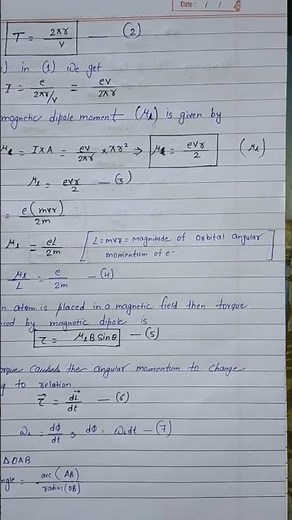 Date: / /
T = 2πr/v — (2)
in (1) we get
I = e/(2πr/v) = ev/2πr
magnetic dipole moment (μₗ) is given by
= I×A = ev/2πr × πr² ⇒ μₗ = evr/2 (μₗ)
μₗ = evr/2 — (3)
= e(mvr)/2m
μₗ = eL/2m [L = mvr = magnitude of orbital angular
momentum of e⁻
μₗ/L = e/2m — (4)
atom is placed in a magnetic field then torque
by magnetic dipole is
τ = μₗBSinθ — (5)
causes the angular momentum to change
to relation
τ⃗ = dL⃗/dt — (6)
ωₗ = dϕ/dt ⇒ dϕ = ωₗdt — (7)
ΔOAB
arc(AB)
radius(OB)